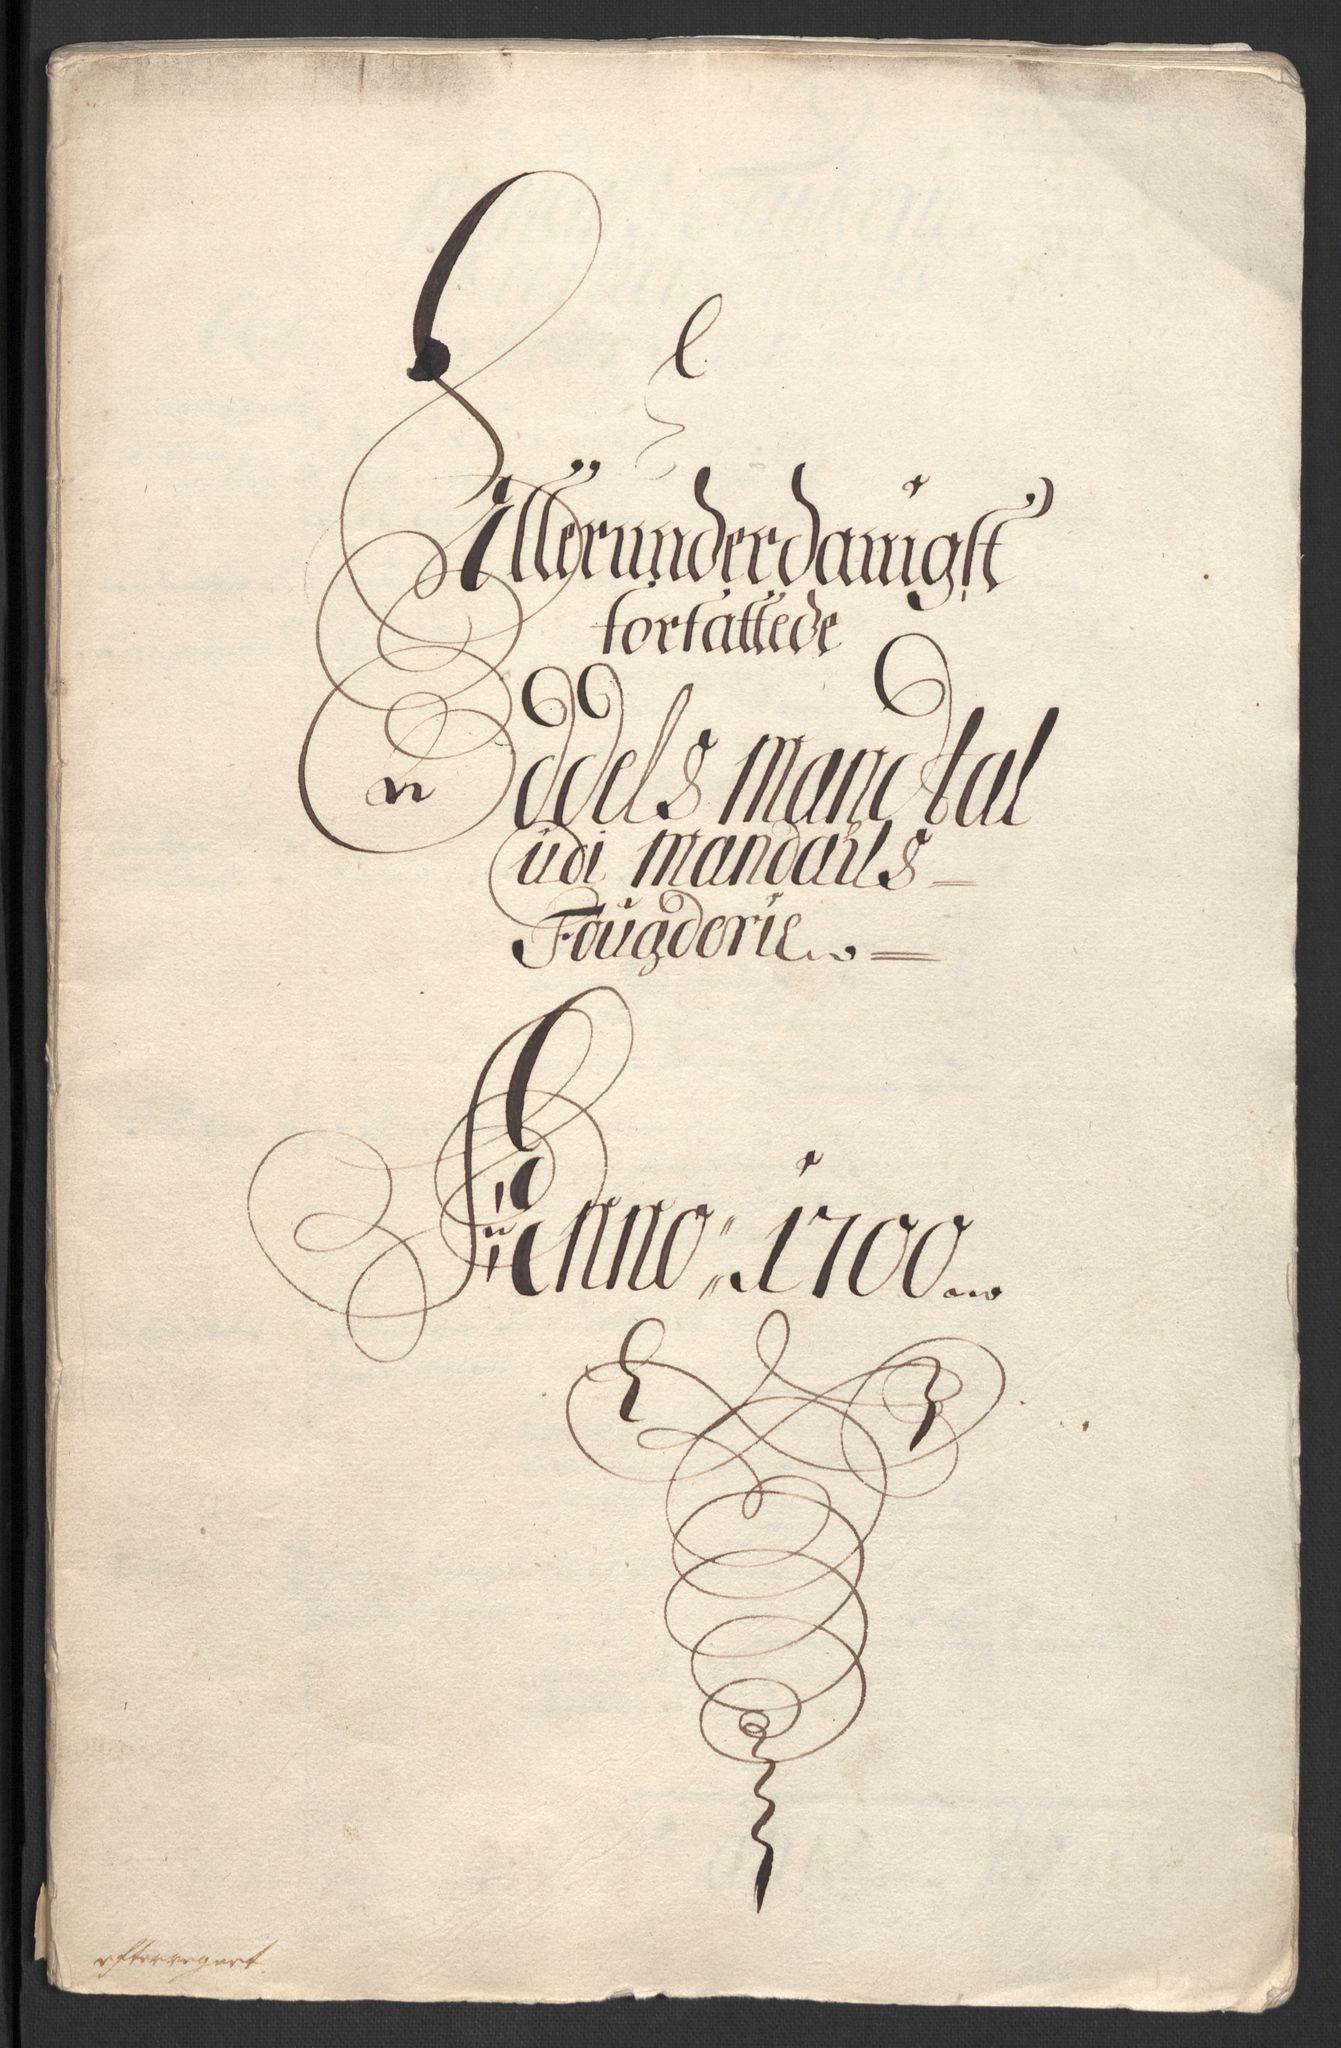 Allerunderdanigst
forfattede
Oddels mandtal
udi Mandahls
Fougderie
Anno 1700
efterregnet